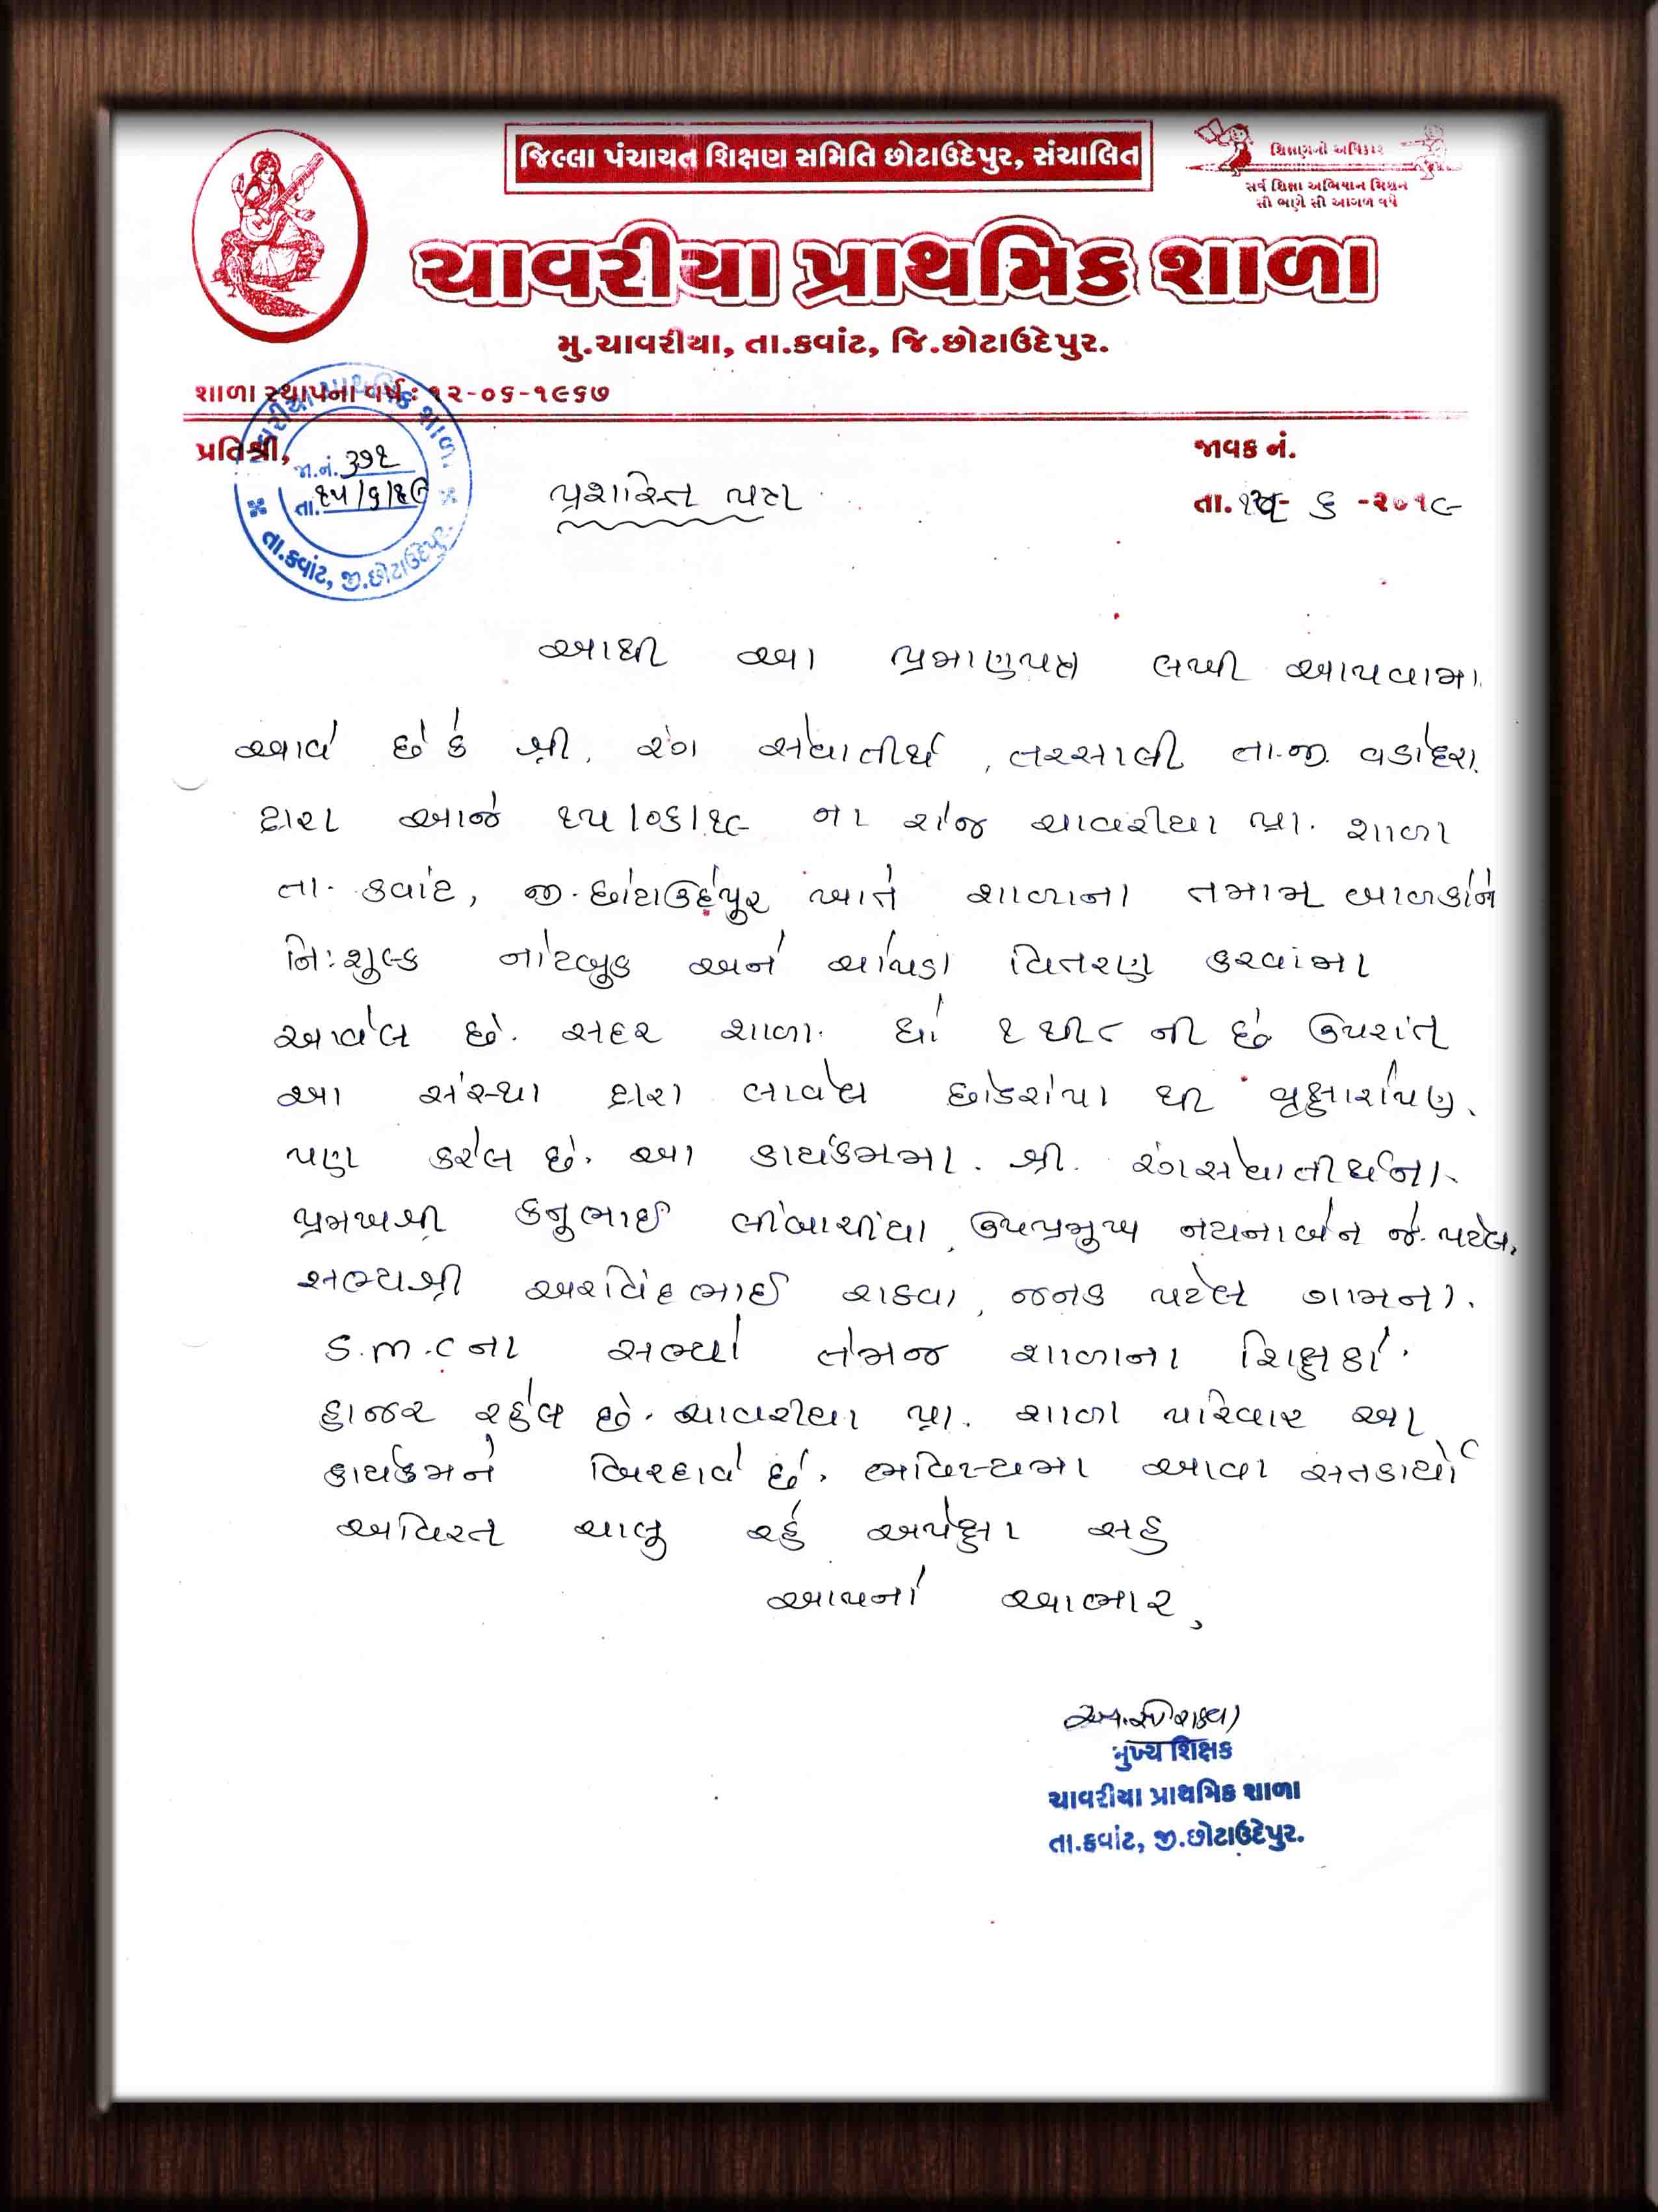 જિલ્લા પંચાયત શિક્ષણ સમિતિ છોટાઉદેપુર, સંચાલિત
શિક્ષણનો અધિકાર
સર્વ શિક્ષા અભિયાન મિશન
સૌ ભણે સૌ આગળ વધે
ચાવરીયા પ્રાથમિક શાળા
મુ.ચાવરીયા, તા.કવાંટ, જિ.છોટાઉદેપુર.
શાળા સ્થાપના વર્ષ : ૧૨-૦૬-૧૯૬૭
પ્રતિશ્રી,
જાવક નં.
ચાવરીયા પ્રાથમિક શાળા
જા.નં. ૩૭૧
તા. ૧૫/૬/૧૯
તા.કવાંટ, જી.છોટાઉદેપુર.
પ્રશસ્તિ પત્ર
તા.૧૫- ૬ -૨૦૧૯
આથી આ પ્રમાણપત્ર લખી આપવામા
આવે છે કે શ્રી. રંગ સેવાતીર્થ, તરસાલી તા.જી. વડોદરા
દ્વારા આજે ૧૫/૦૬/૧૯ ના રોજ ચાવરીયા પ્રા. શાળા
તા. કવાંટ, જી.છોટાઉદેપુર ખાતે શાળાના તમામ બાળકોને
નિઃશુલ્ક નોટબુક અને ચોપડા વિતરણ કરવાંમા
આવેલ છે. સદર શાળા ધો ૧ થી ૮ ની છે ઉપરાંત
આ સંસ્થા દ્વારા લાવેલ છોડરોપા થી વૃક્ષારોપણ
પણ કરેલ છે. આ કાર્યક્રમમા. શ્રી. રંગસેવાતીર્થના
પ્રમખશ્રી કનુભાઈ લીંબાચીયા, ઉપપ્રમુખ નયનાબેન જે. પટેલ,
સભ્યશ્રી અરવિંદભાઈ રાઠવા, જનક પટેલ ગામના.
S.m.C ના સભ્યો તેમજ શાળાના શિક્ષકો.
હાજર રહેલ છે. ચાવરીયા પ્રા. શાળા પરિવાર આ
કાર્યક્રમને બિરદાવે છે. ભવિષ્યમા આવા સતકાર્યો
અવિરત ચાલુ રહે અપેક્ષા સહ
આપનો આભાર,
મુખ્ય શિક્ષક
ચાવરીયા પ્રાથમિક શાળા
તા.કવાંટ, જી.છોટાઉદેપુર.